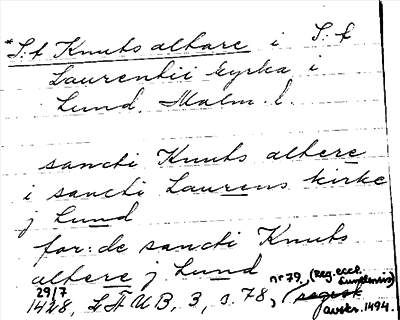 *S:t Knuts altare i S:t
Laurentii kyrka i
Lund. Malm. l.
sancti Knuts altere
i sancti Laurens kirke
j Lund
for: de sancti Knuts
altere j Lund
29/7 nr 79, (Reg. eccl. Lundensis)
1428, LÄUB, 3, s. 78, avskr. 1494.